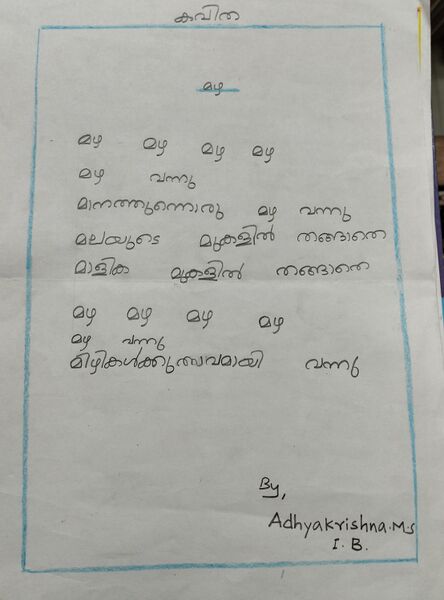 കവിത
മഴ
മഴ മഴ മഴ മഴ
മഴ വന്നു
മാനത്തുന്നൊരു മഴ വന്നു
മലയുടെ മുകളിൽ തങ്ങാതെ
മാളിക മുകളിൽ തങ്ങാതെ
മഴ മഴ മഴ മഴ
മഴ വന്നു
മിഴികൾക്കുത്സവമായി വന്നു
By,
Adhyakrishna.M.S
I. B.